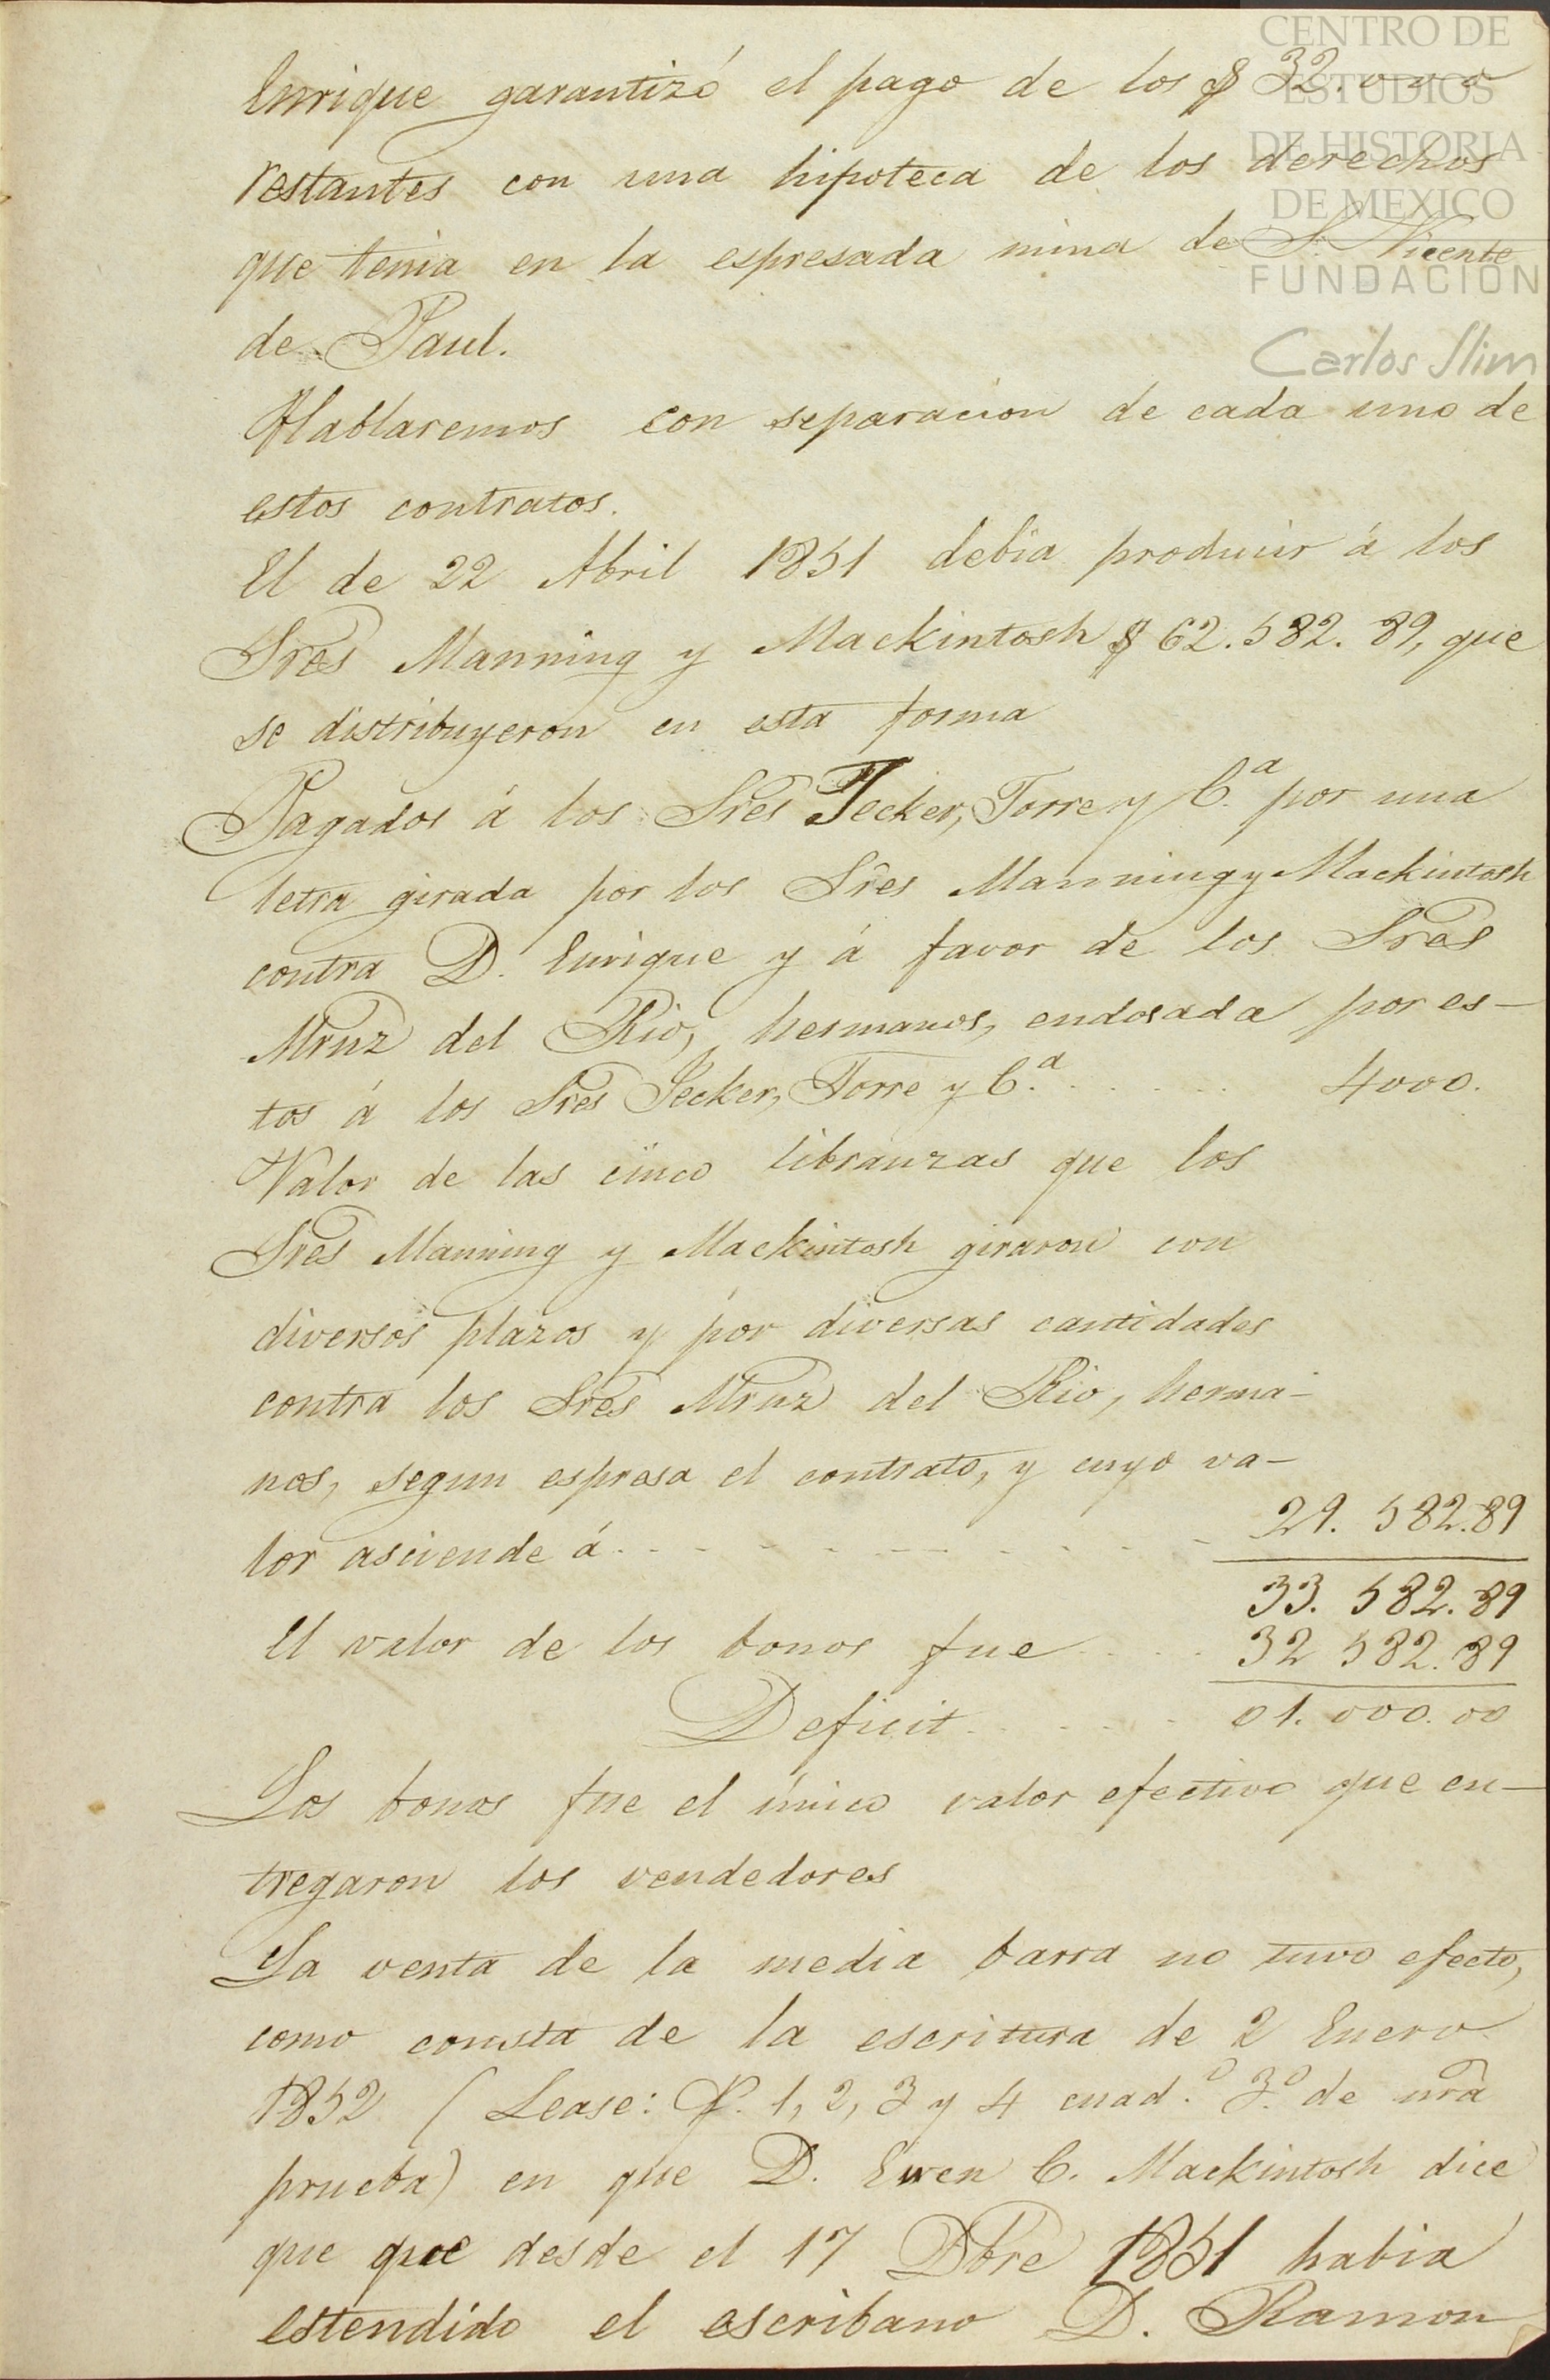 CENTRO DE
ESTUDIOS
DE HISTORIA
DE MEXICO
FUNDACION
Carlos Slim
Enrique garantizó el pago de los $ 32.000
restantes con una hipoteca de los derechos
que tenia en la espresada mina de S. Vicente
de Paul.
Hablaremos con separacion de cada uno de
estos contratos.
El de 22 Abril 1851 debia producir á los
Sres Manning y Mackintosh $ 62.582.89, que
se distribuyeron en esta forma
Pagados á los Sres Jecker, Torre y C.ª por una
letra girada por los Sres Manning y Mackintosh
contra D. Enrique y á favor de los Sres
Mrnz del Rio, hermanos, endosada por es-
tos á los Sres Jecker, Torre y C.ª . . . . . . 4000.
Valor de las cinco libranzas que los
Sres Manning y Mackintosh giraron con
diversos plazos y por diversas cantidades
contra los Sres Mrnz del Rio, herma-
nos, segun espresa el contrato, y cuyo va-
lor asciende á . . . . . . . . . . 29. 582.89
33. 582.89
El valor de los bonos fue . . . . 32 582.89
Deficit . . . . . 01.000.00
Los bonos fue el único valor efectivo que en-
tregaron los vendedores
La venta de la media barra no tuvo efecto,
como consta de la escritura de 2 Enero
1852 (Lease: f. 1, 2, 3 y 4 cuad.º 3.º de nrã
prueba) en que D. Ewen C. Mackintosh dice
que que desde el 17 Dbre 1851 habia
estendido el escribano D. Ramon